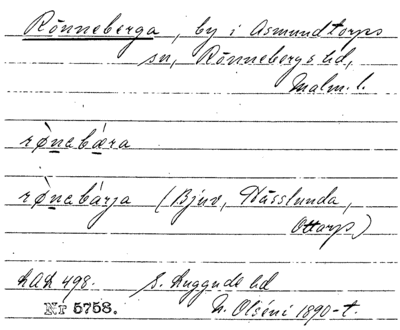 Rönneberga, by i Asmundtorps
sn, Rönnebergs hd,
Malm. l.
rø̀nebæra
rø̀nebárja (Bjuv, Hässlunda,
Ottarp)
LAL 498. S. Luggude hd
Nr 5758. N. Olséni 1890-t.